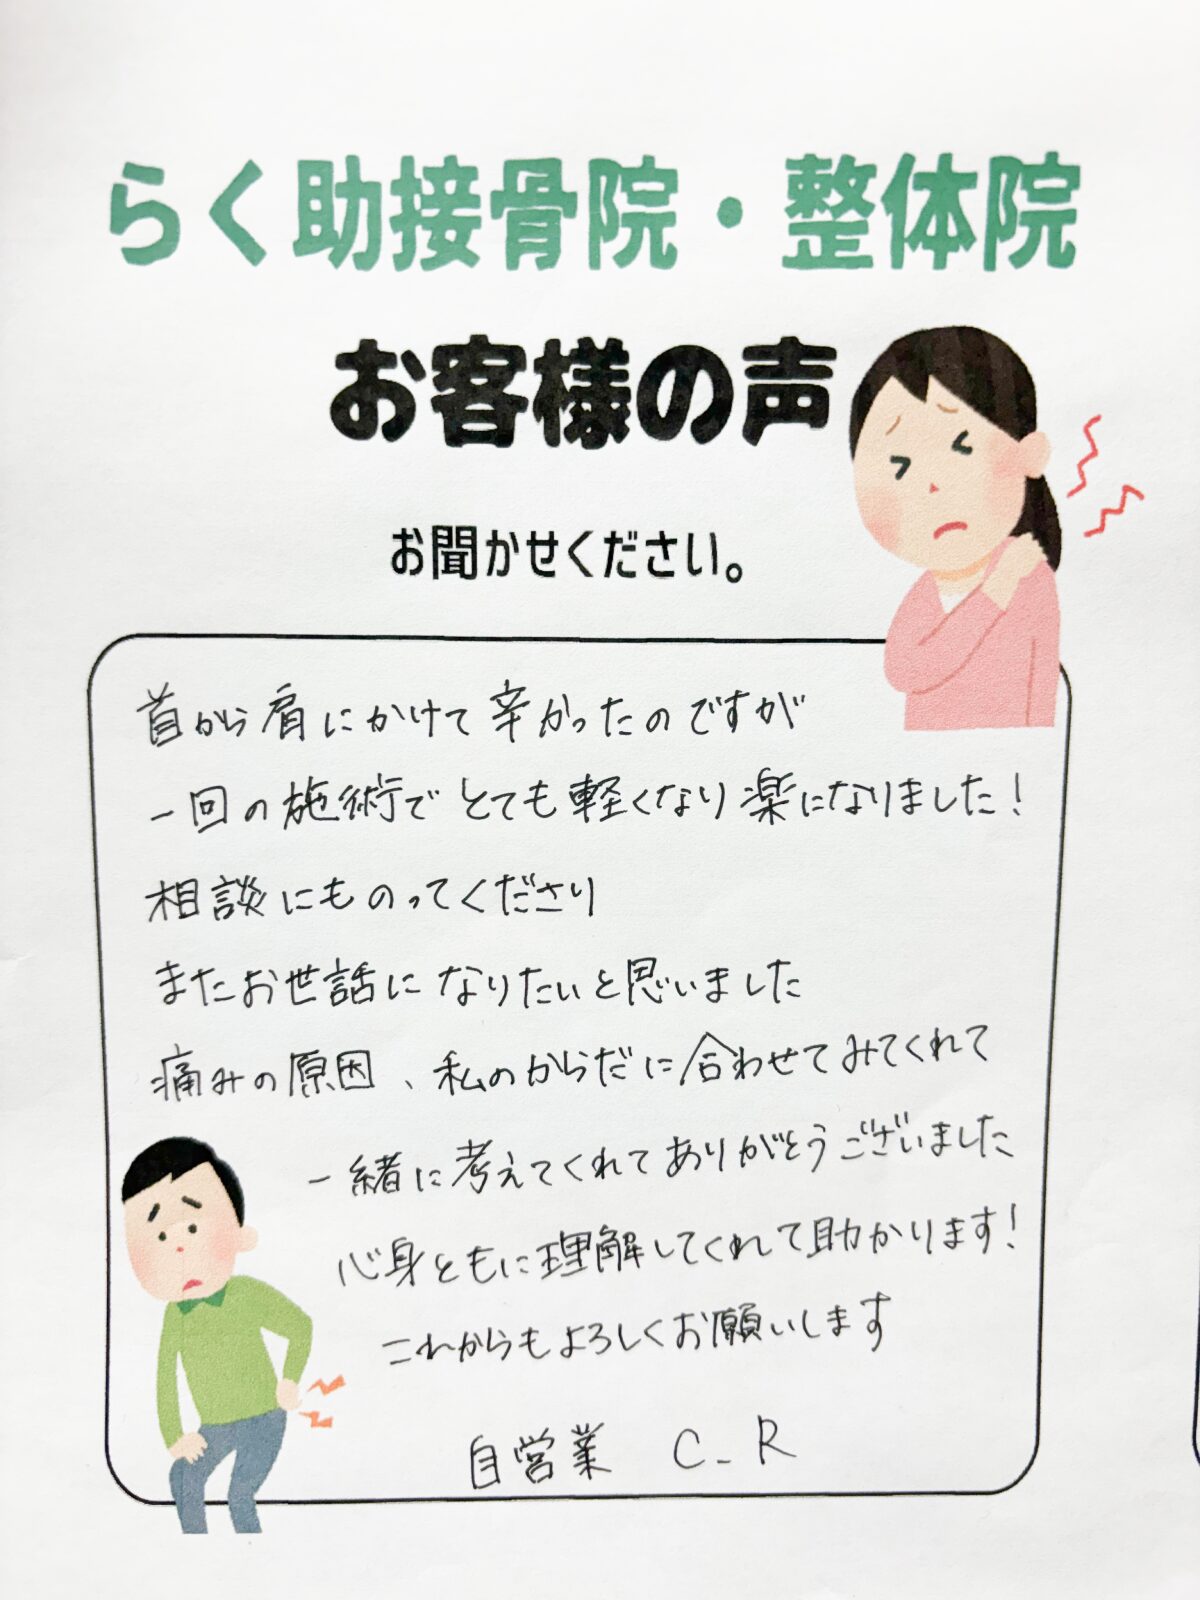 らく助接骨院・整体院
お客様の声
お聞かせください。
首から肩にかけて辛かったのですが
一回の施術でとても軽くなり楽になりました!
相談にものってくださり
またお世話になりたいと思いました
痛みの原因、私のからだに合わせてみてくれて
一緒に考えてくれてありがとうございました
心身ともに理解してくれて助かります!
これからもよろしくお願いします
自営業 C.R